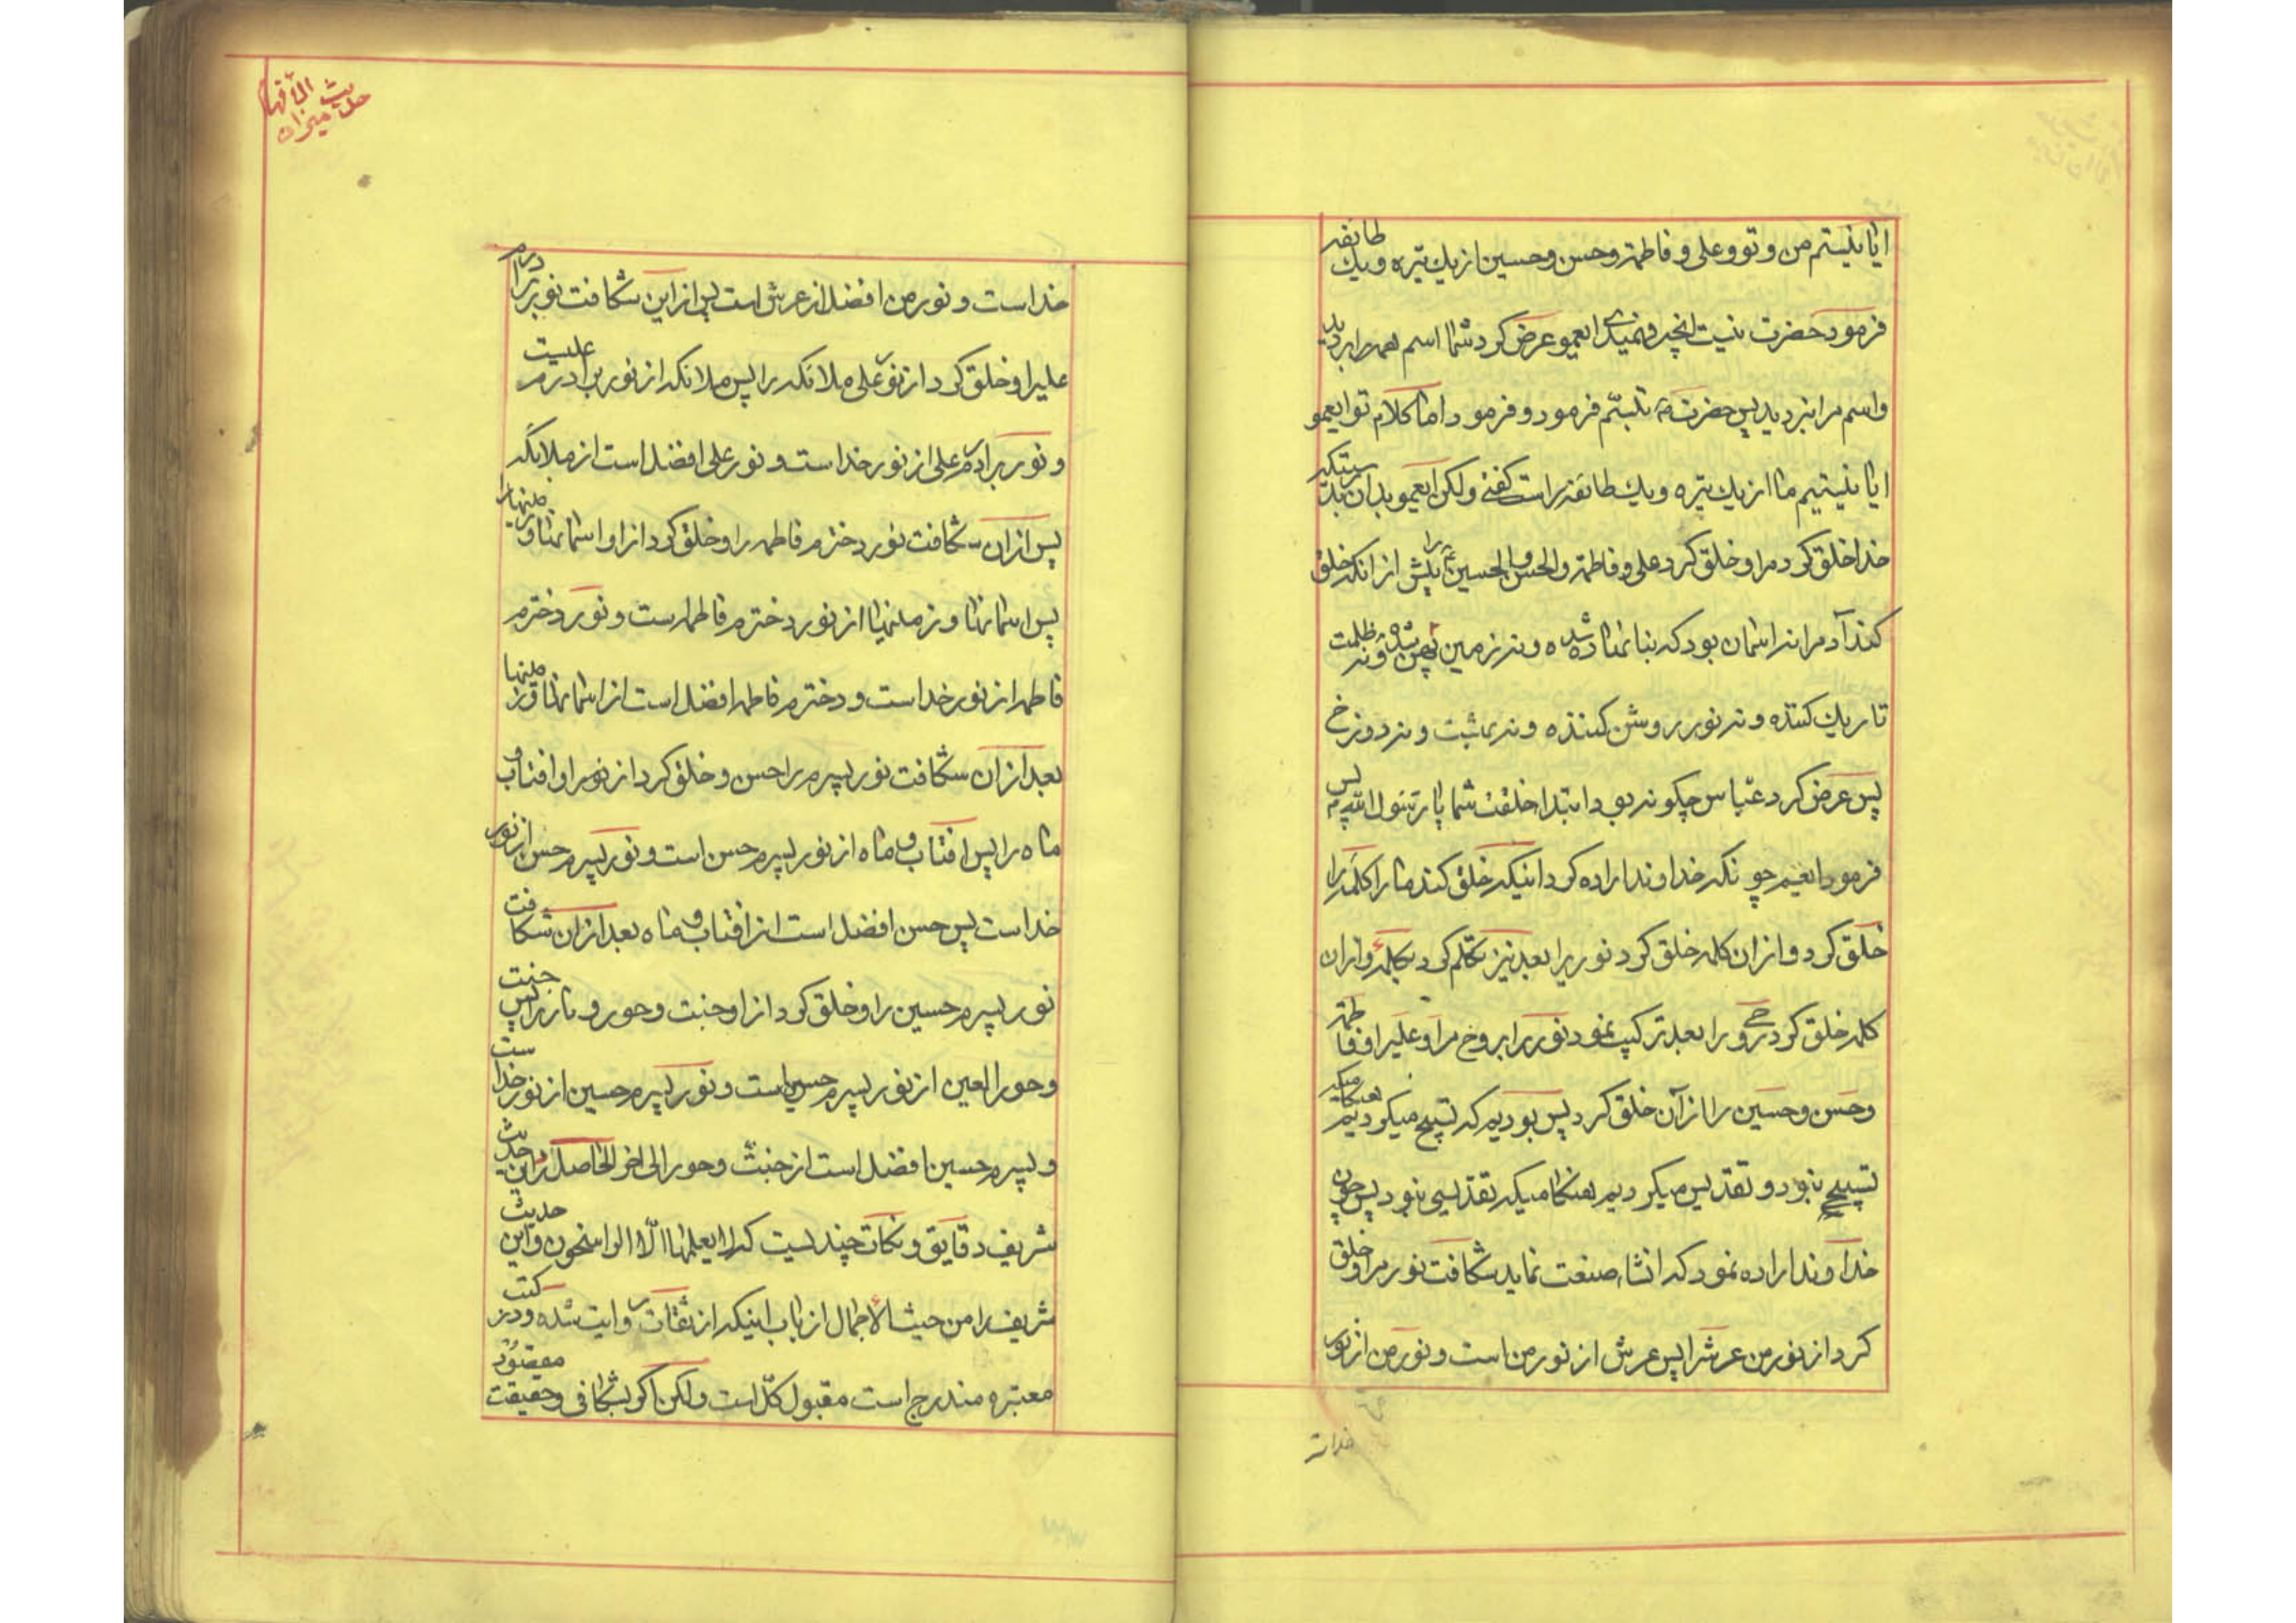 ایا نیستم من و تو و علی و فاطمة و حسن و حسین از یك تیره و یك طایفه
فرمود حضرت نیست انچه فهمیدی ایعمو عرض کرد شما اسم همه را بردید
و اسم مرا نبردید پس حضرت تبسّم فرمود و فرمود اما کلام تو ایعمو
ایا نیستیم ما از یك تیره و یك طایفه راست گفتی ولکن ایعمو بدان بدرستیکه
خدا خلق کرد مرا و خلق کرد علی و فاطمة و الحسن و الحسین را پیش از انکه خلق
کند آدم را نه اسمان بود که بنا نهاده شده و نه زمین پهن شده و نه ظلمت
تاریك کننده و نه نور روشن کننده و نه بهشت و نه دوزخ
پس عرض کرد عبّاس چکونه بود ابتدا خلقت شما یا رسول الله پس
فرمود ایعم چونکه خداوند اراده کرد اینکه خلق کند ما را کلمه را
خلق کرد و از ان کلمه خلق کرد نوریرا بعد نیز تکلم کرد بکلمهٔ و از ان
کلمه خلق کرد روحی را بعد ترکیب نمود نور را بروح مرا و علیرا و فاطمه
و حسن و حسین را از آن خلق کرد پس بودیم که تسبیح میکردیم هنکامیکه
تسبیح نبود و تقدیس میکردیم هنکامیکه تقدیسی نبود پس چون
خداوند اراده نمود که انشاء صنعت نماید شکافت نور مرا و خلق
کرد از نور من عرشرا پس عرش از نور من است و نور من از نور
خداست
حدیث میزان الأفهام
خداست و نور من افضل از عرش است پس از این شکافت نور برادرم
علیرا و خلق کرد از نور علی ملائکه را پس ملائکه از نور برادرم علیست
و نور برادرم علی از نور خداست و نور علی افضل است از ملائکه
پس از ان شکافت نور دخترم فاطمه را و خلق کرد از او اسمانها و زمینها را
پس اسمانها و زمینها از نور دخترم فاطمه است و نور دخترم
فاطمه از نور خداست و دخترم فاطمه افضل است از اسمانها و زمینها
بعد از ان شکافت نور پسرم را حسن و خلق کرد از نور او افتاب و
ماه را پس افتاب و ماه از نور پسرم حسن است و نور پسرم حسن از نور
خداست پس حسن افضل است از افتاب و ماه بعد از ان شکافت
نور پسرم حسین را و خلق کرد از او جنت و حور و را پس جنت
و حور العین از نور پسرم حسین است و نور پسرم حسین از نور خداست
و پسرم حسین افضل است از جنت و حور الی اخر الحاصل در این حدیث
شریف دقایق و نکات چندیست که لا یعلمها الّا الراسخون و این حدیث
شریف را من حیث الاجمال از باب اینکه از ثقات روایت شده و در کتب
معتبره مندرج است مقبول کلّ است ولکن اکر بشکافی و حقیقت مقصود